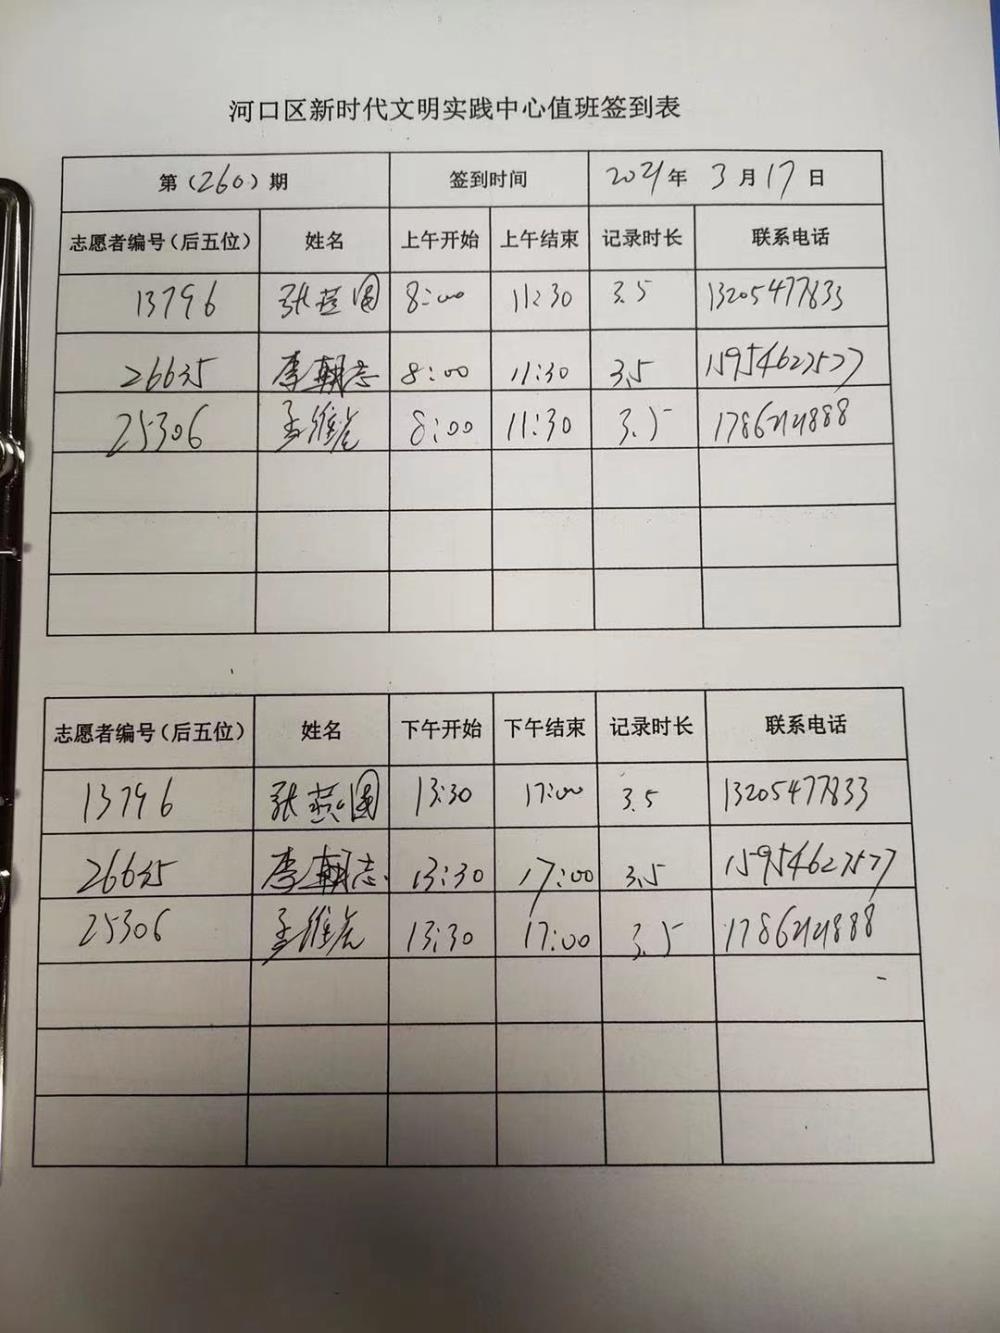 河口区新时代文明实践中心值班签到表
第（260）期 签到时间 2021年 3月17日
志愿者编号（后五位） 姓名 上午开始 上午结束 记录时长 联系电话
13796 张燕圆 8:00 11:30 3.5 13205477833
26635 李朝志 8:00 11:30 3.5 15954627577
25306 孟维 8:00 11:30 3.5
志愿者编号（后五位） 姓名 下午开始 下午结束 记录时长 联系电话
13796 张燕圆 13:30 17:00 3.5 13205477833
26635 李朝志 13:30 17:00 3.5 15954627577
25306 孟维 13:30 17:00 3.5